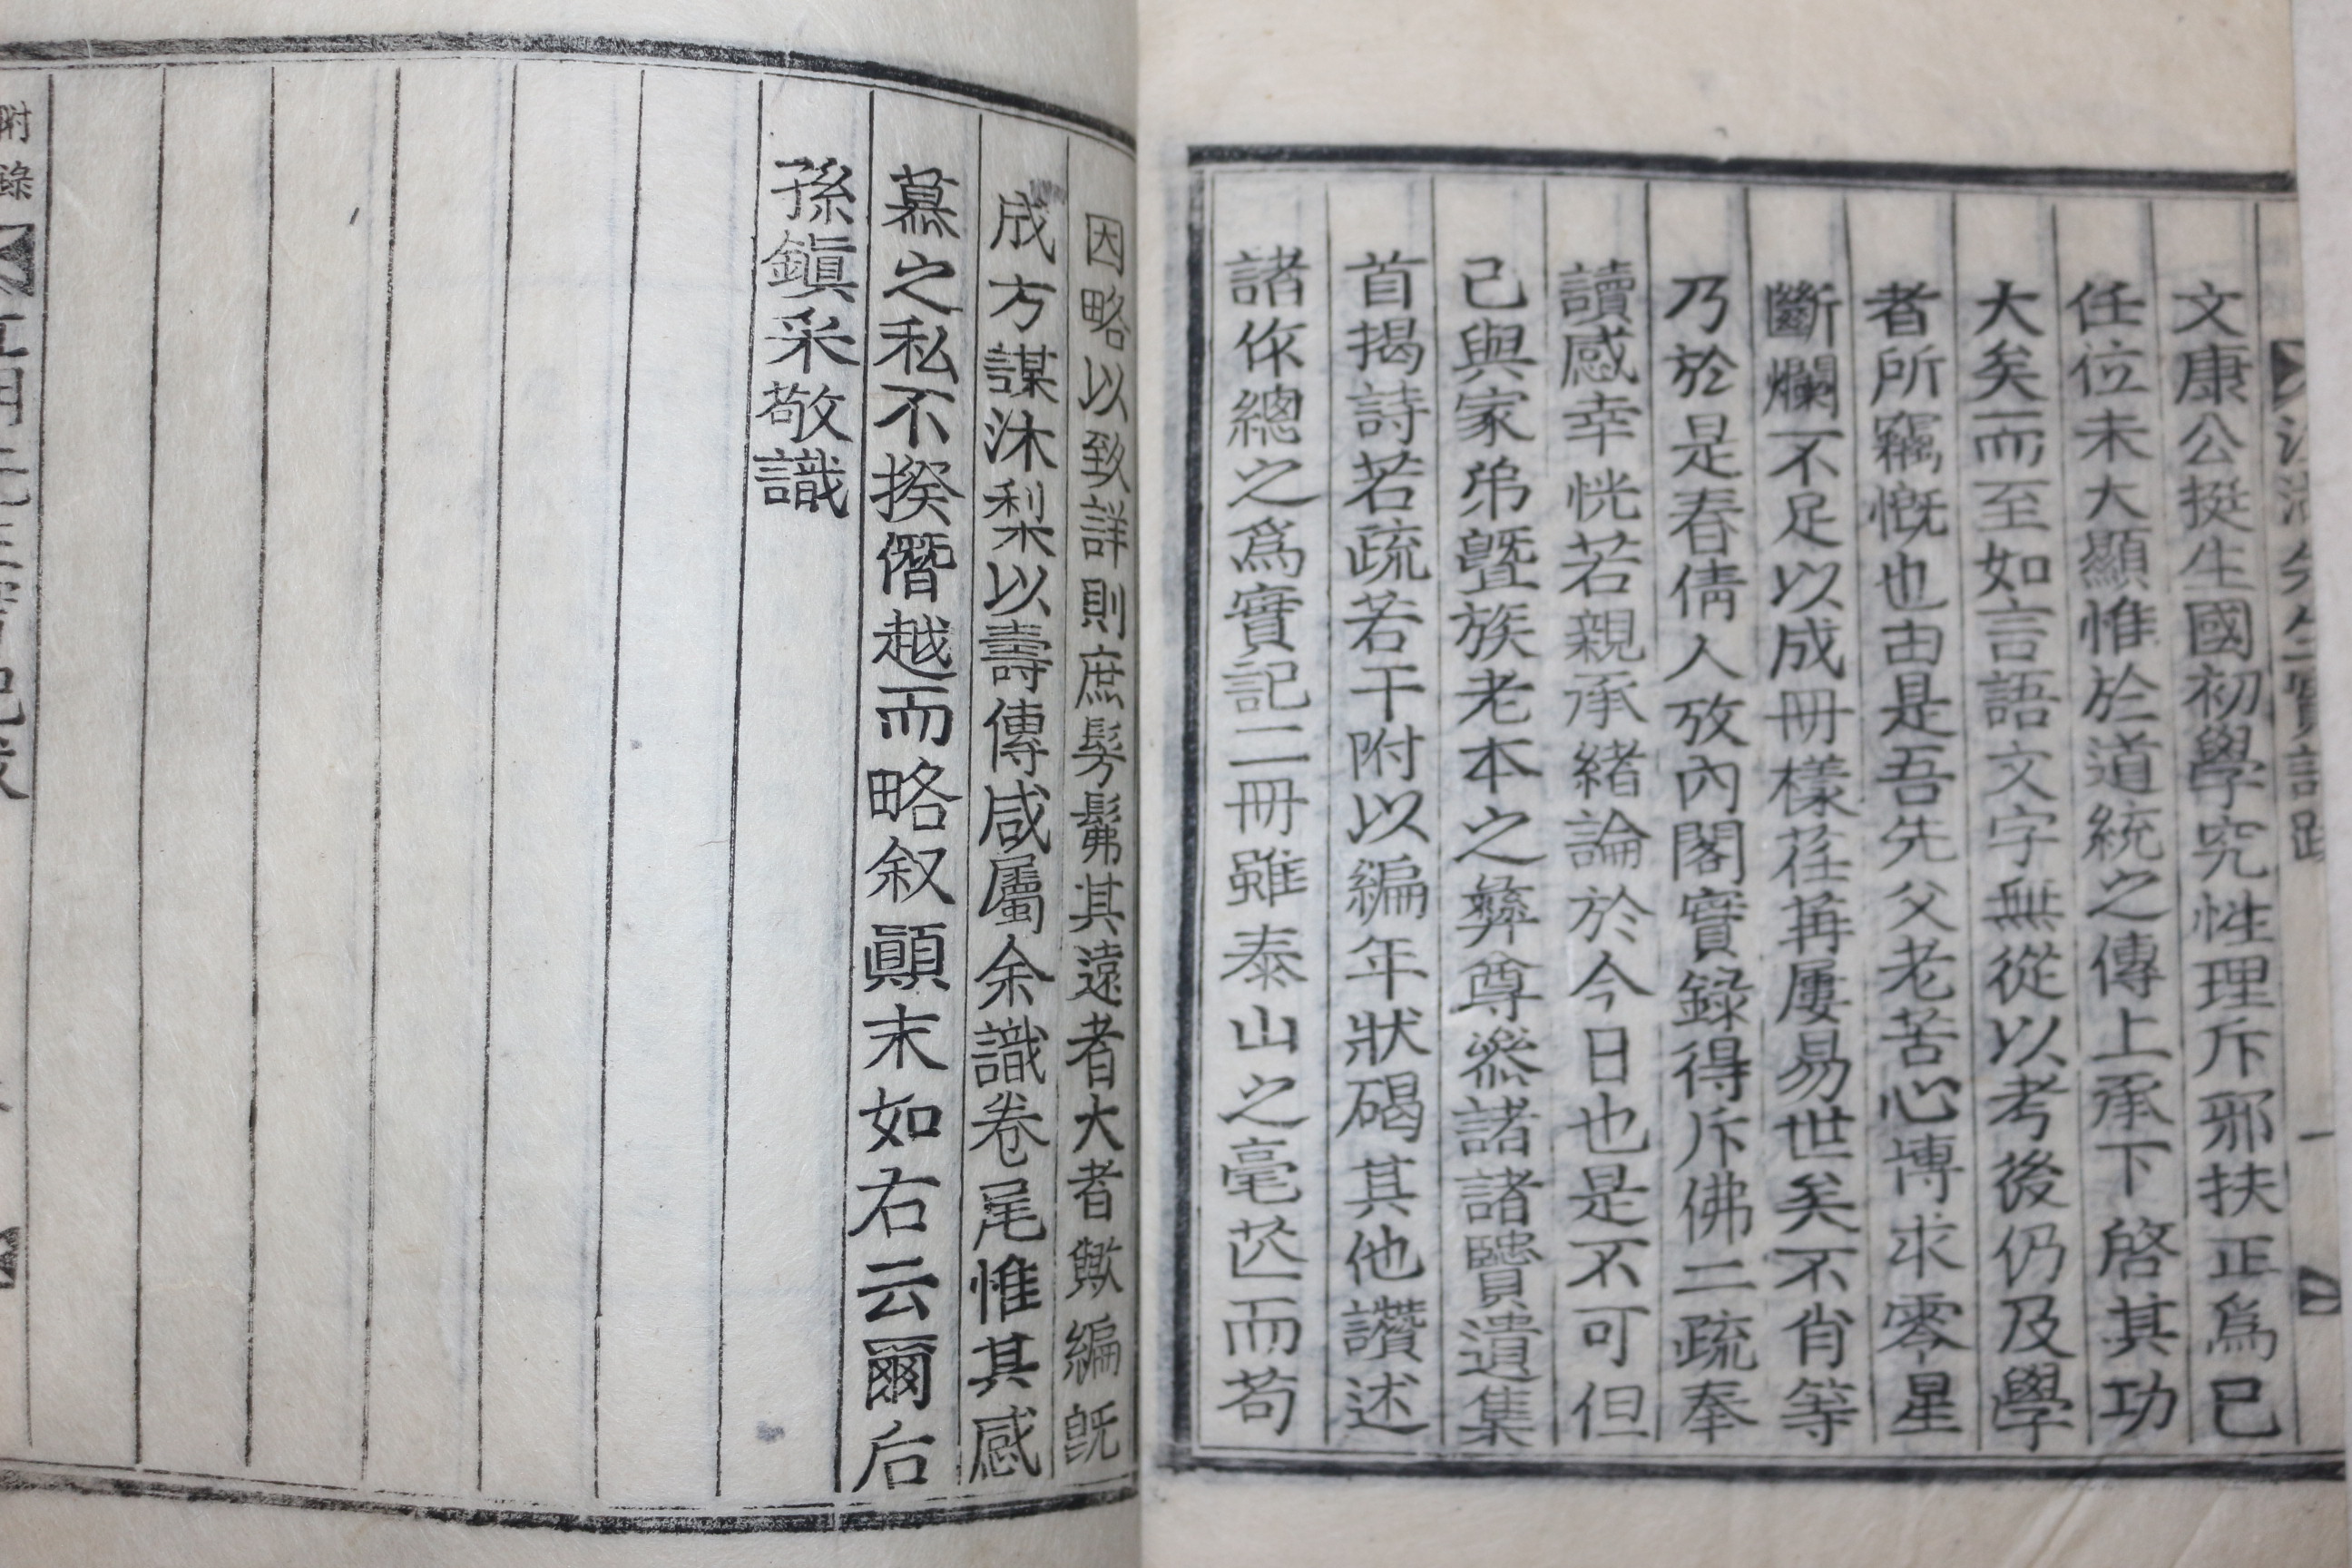 文康公挺生國初學究性理斥邪扶正爲已
任位未大顯惟於道統之傳上承下啓其功
大矣而至如言語文字無從以考後仍及學
者所竊慨也由是吾先父老苦心博求零星
斷爛不足以成冊樣荏苒屢易世矣不肖等
乃於是春倩人攷內閣實錄得斥佛二疏奉
讀感幸恍若親承緖論於今日也是不可但
己與家弟曁族老本之彝尊叅諸諸賢遺集
首揭詩若疏若干附以編年狀碣其他讚述
諸作總之爲實記二冊雖泰山之毫芒而苟
因略以致詳則庶髣髴其遠者大者歟編旣
成方謀沐梨以壽傳咸屬余識卷尾惟其感
慕之私不揆僭越而略叙顚末如右云爾后
孫鎭釆敬識
附錄
先生實記跋
一